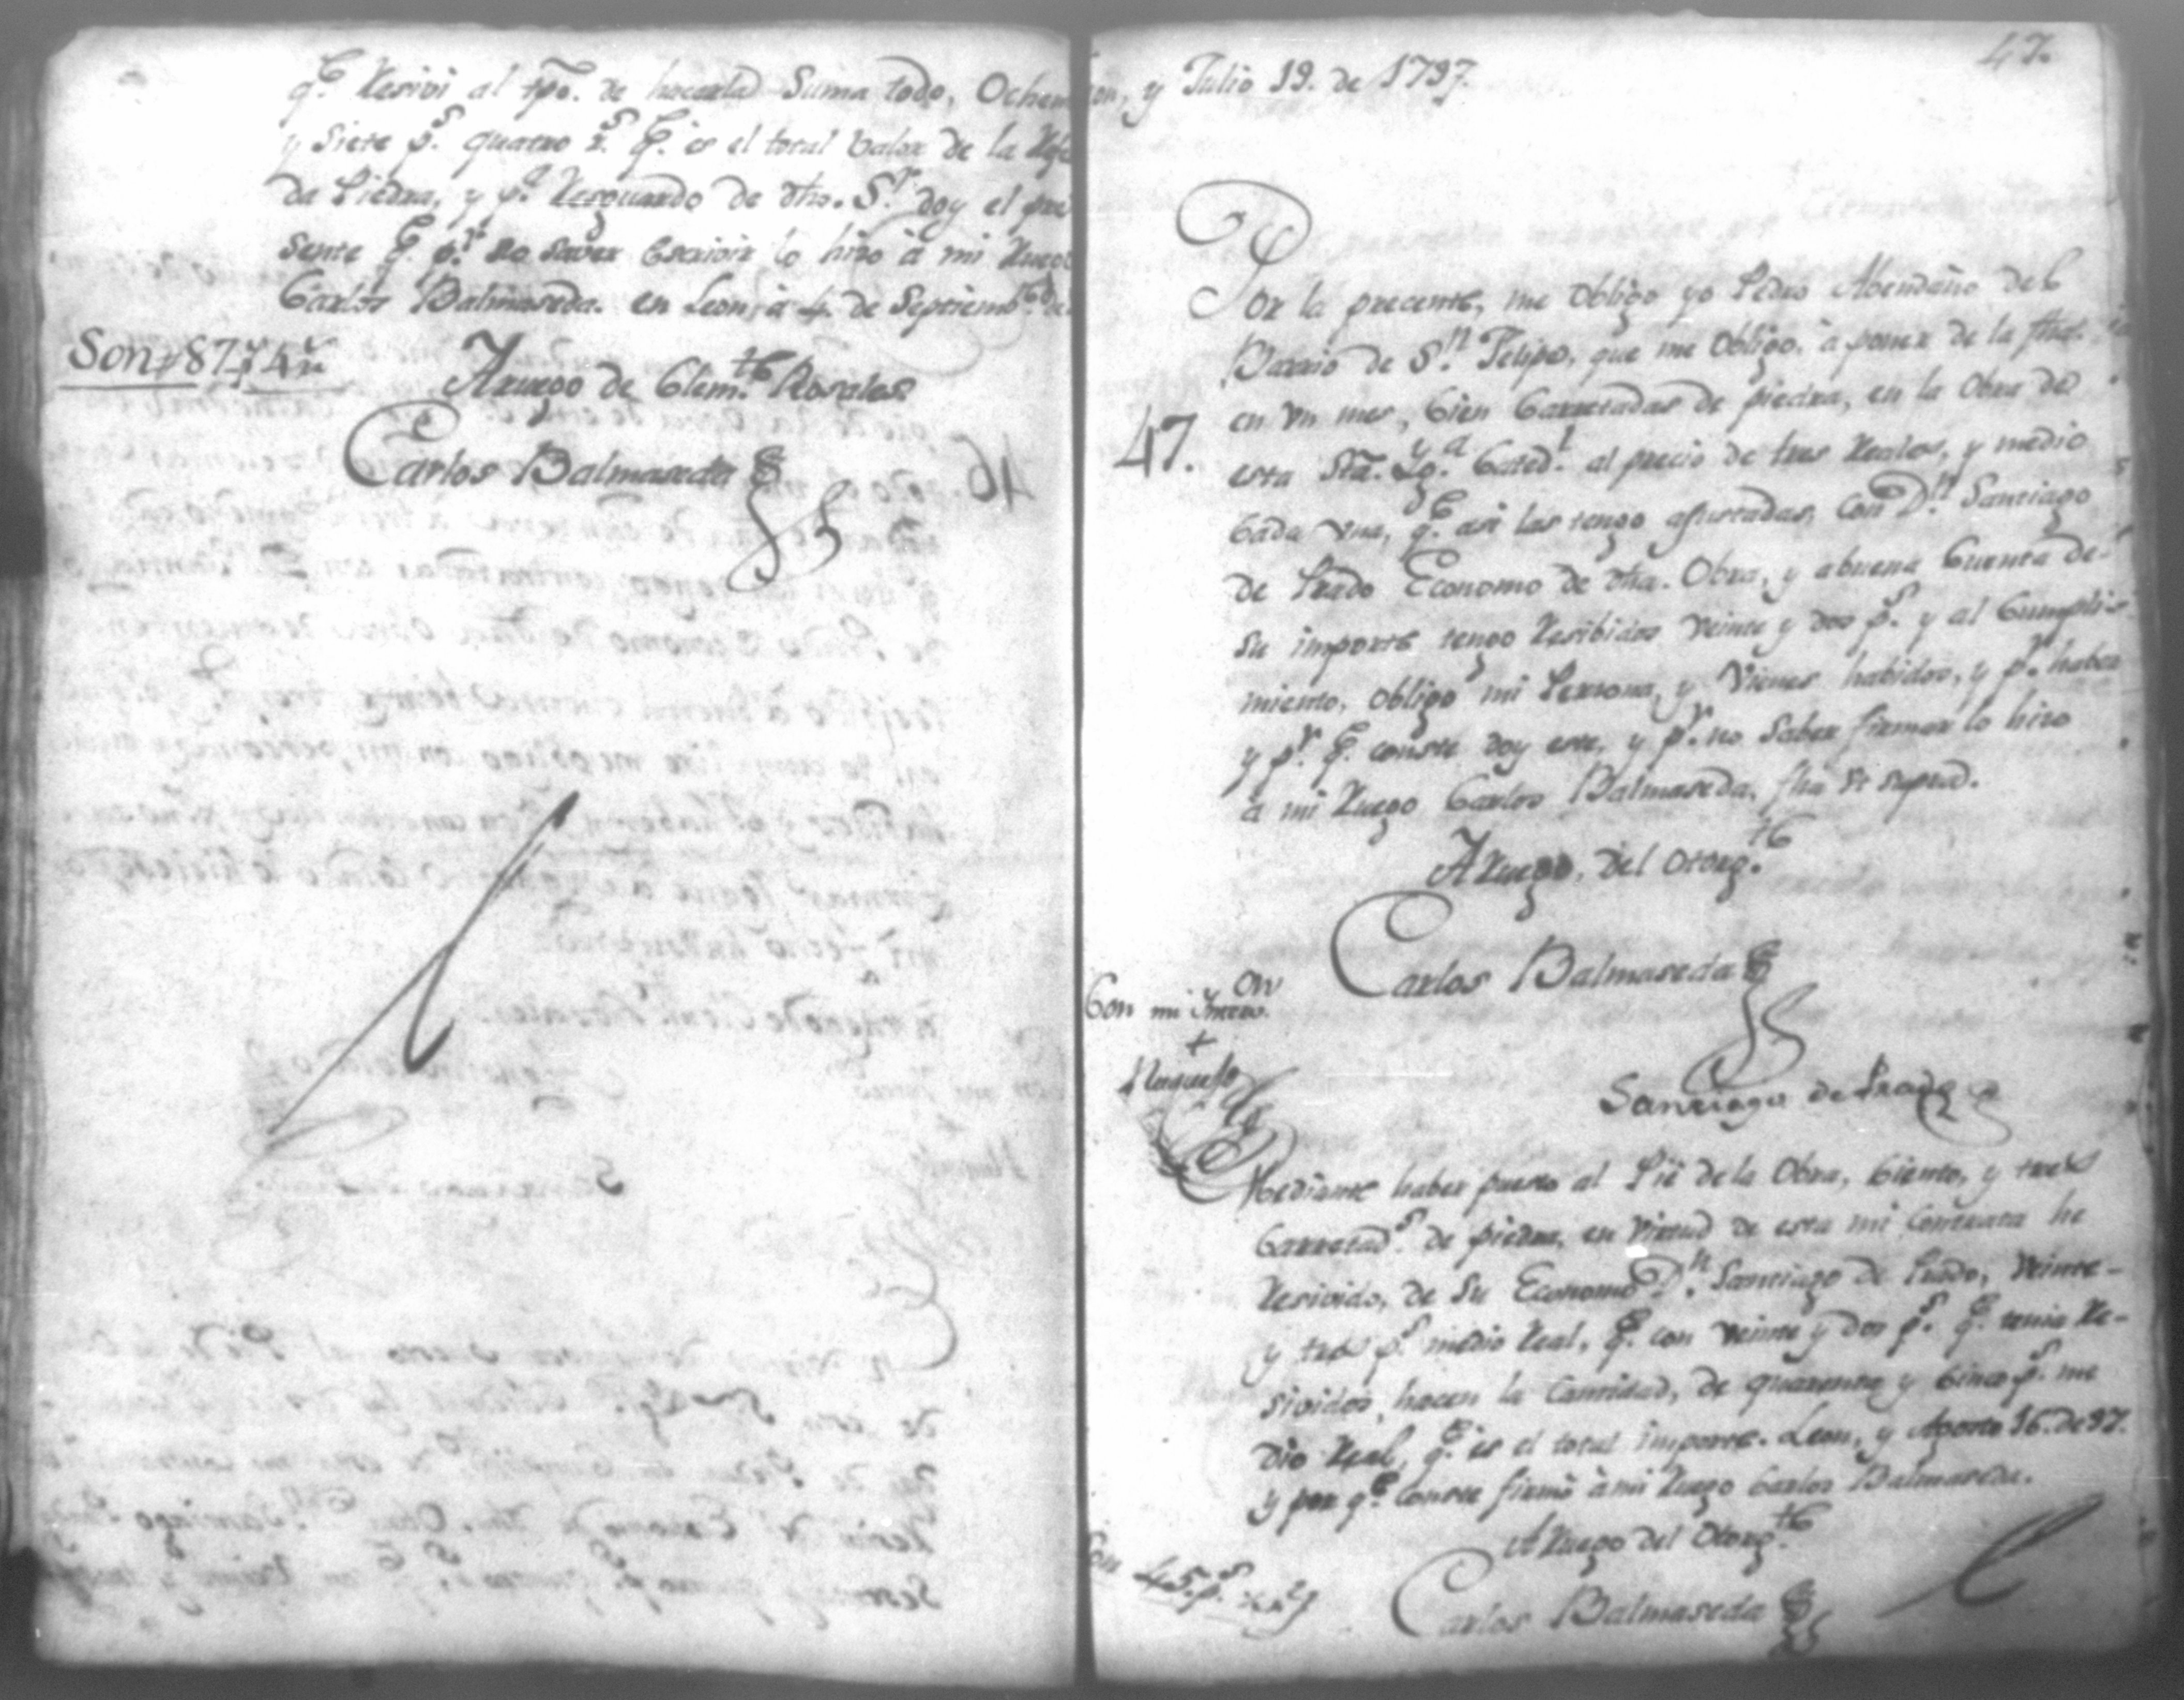 q.e Resivi al tpo. de hacerla Suma todo, Ochen
y Siete p.s quatro r.s q.e es el total Valor de la Refe
da Piedra, y p.a Resguardo de dho. S.r doy el pre
sente q.e p.r no saver Escrivir lo hizo à mi Ruego
Carlos Balmaseda. en Leon, à 4. de Septiemb.e de
Son 87 p 4 r
A ruego de Clem.te Rosales
Carlos Balmaseda
47.
on, y Julio 19. de 1797.
Por la precente, me obligo yo Pedro Abendaño del
Barrio de S.n Felipe, que me Obligo, à poner de la fha.
en un mes, Cien Carretadas de piedra, en la Obra de
47.
esta Sta. Yg.a Cated.l al precio de tres Reales, y medio
Cada una, q.e asi las tengo ajustadas, con D.n Santiago
de Prado Economo de dha. Obra, y abuena Cuenta de
su importe tengo Resibidos Veinte y dos p.s y al Cumpli-
miento, obligo mi Persona, y Vienes habidos, y p.r haber
y p.r q.e conste doy este, y p.r no Saber firmar lo hizo
à mi Ruego Carlos Balmaseda, fha Vt suprad.
A Ruego, del Otorg.te
Carlos Balmaseda
Con mi Interv.on
+
Huguelo
Santiago de Prado
Mediante haber puesto al Pie de la Obra, Ciento, y tres
Carretad.s de piedra, en Virtud de esta mi Contrata he
Resivido, de Su Economo D.n Santiago de Prado, Veinte-
y tres p.s medio Real, q.e con Veinte y dos p.s q.e tenia Re-
sividos, hacen la Cantidad, de quarenta y Cinco p.s me
dio Real, q.e es el total Importe. Leon, y Agosto 16. de 97.
y por q.e Conste firmó à mi Ruego Carlos Balmaseda.
A Ruego del Otorg.te
Son 45 p.s
Carlos Balmaseda